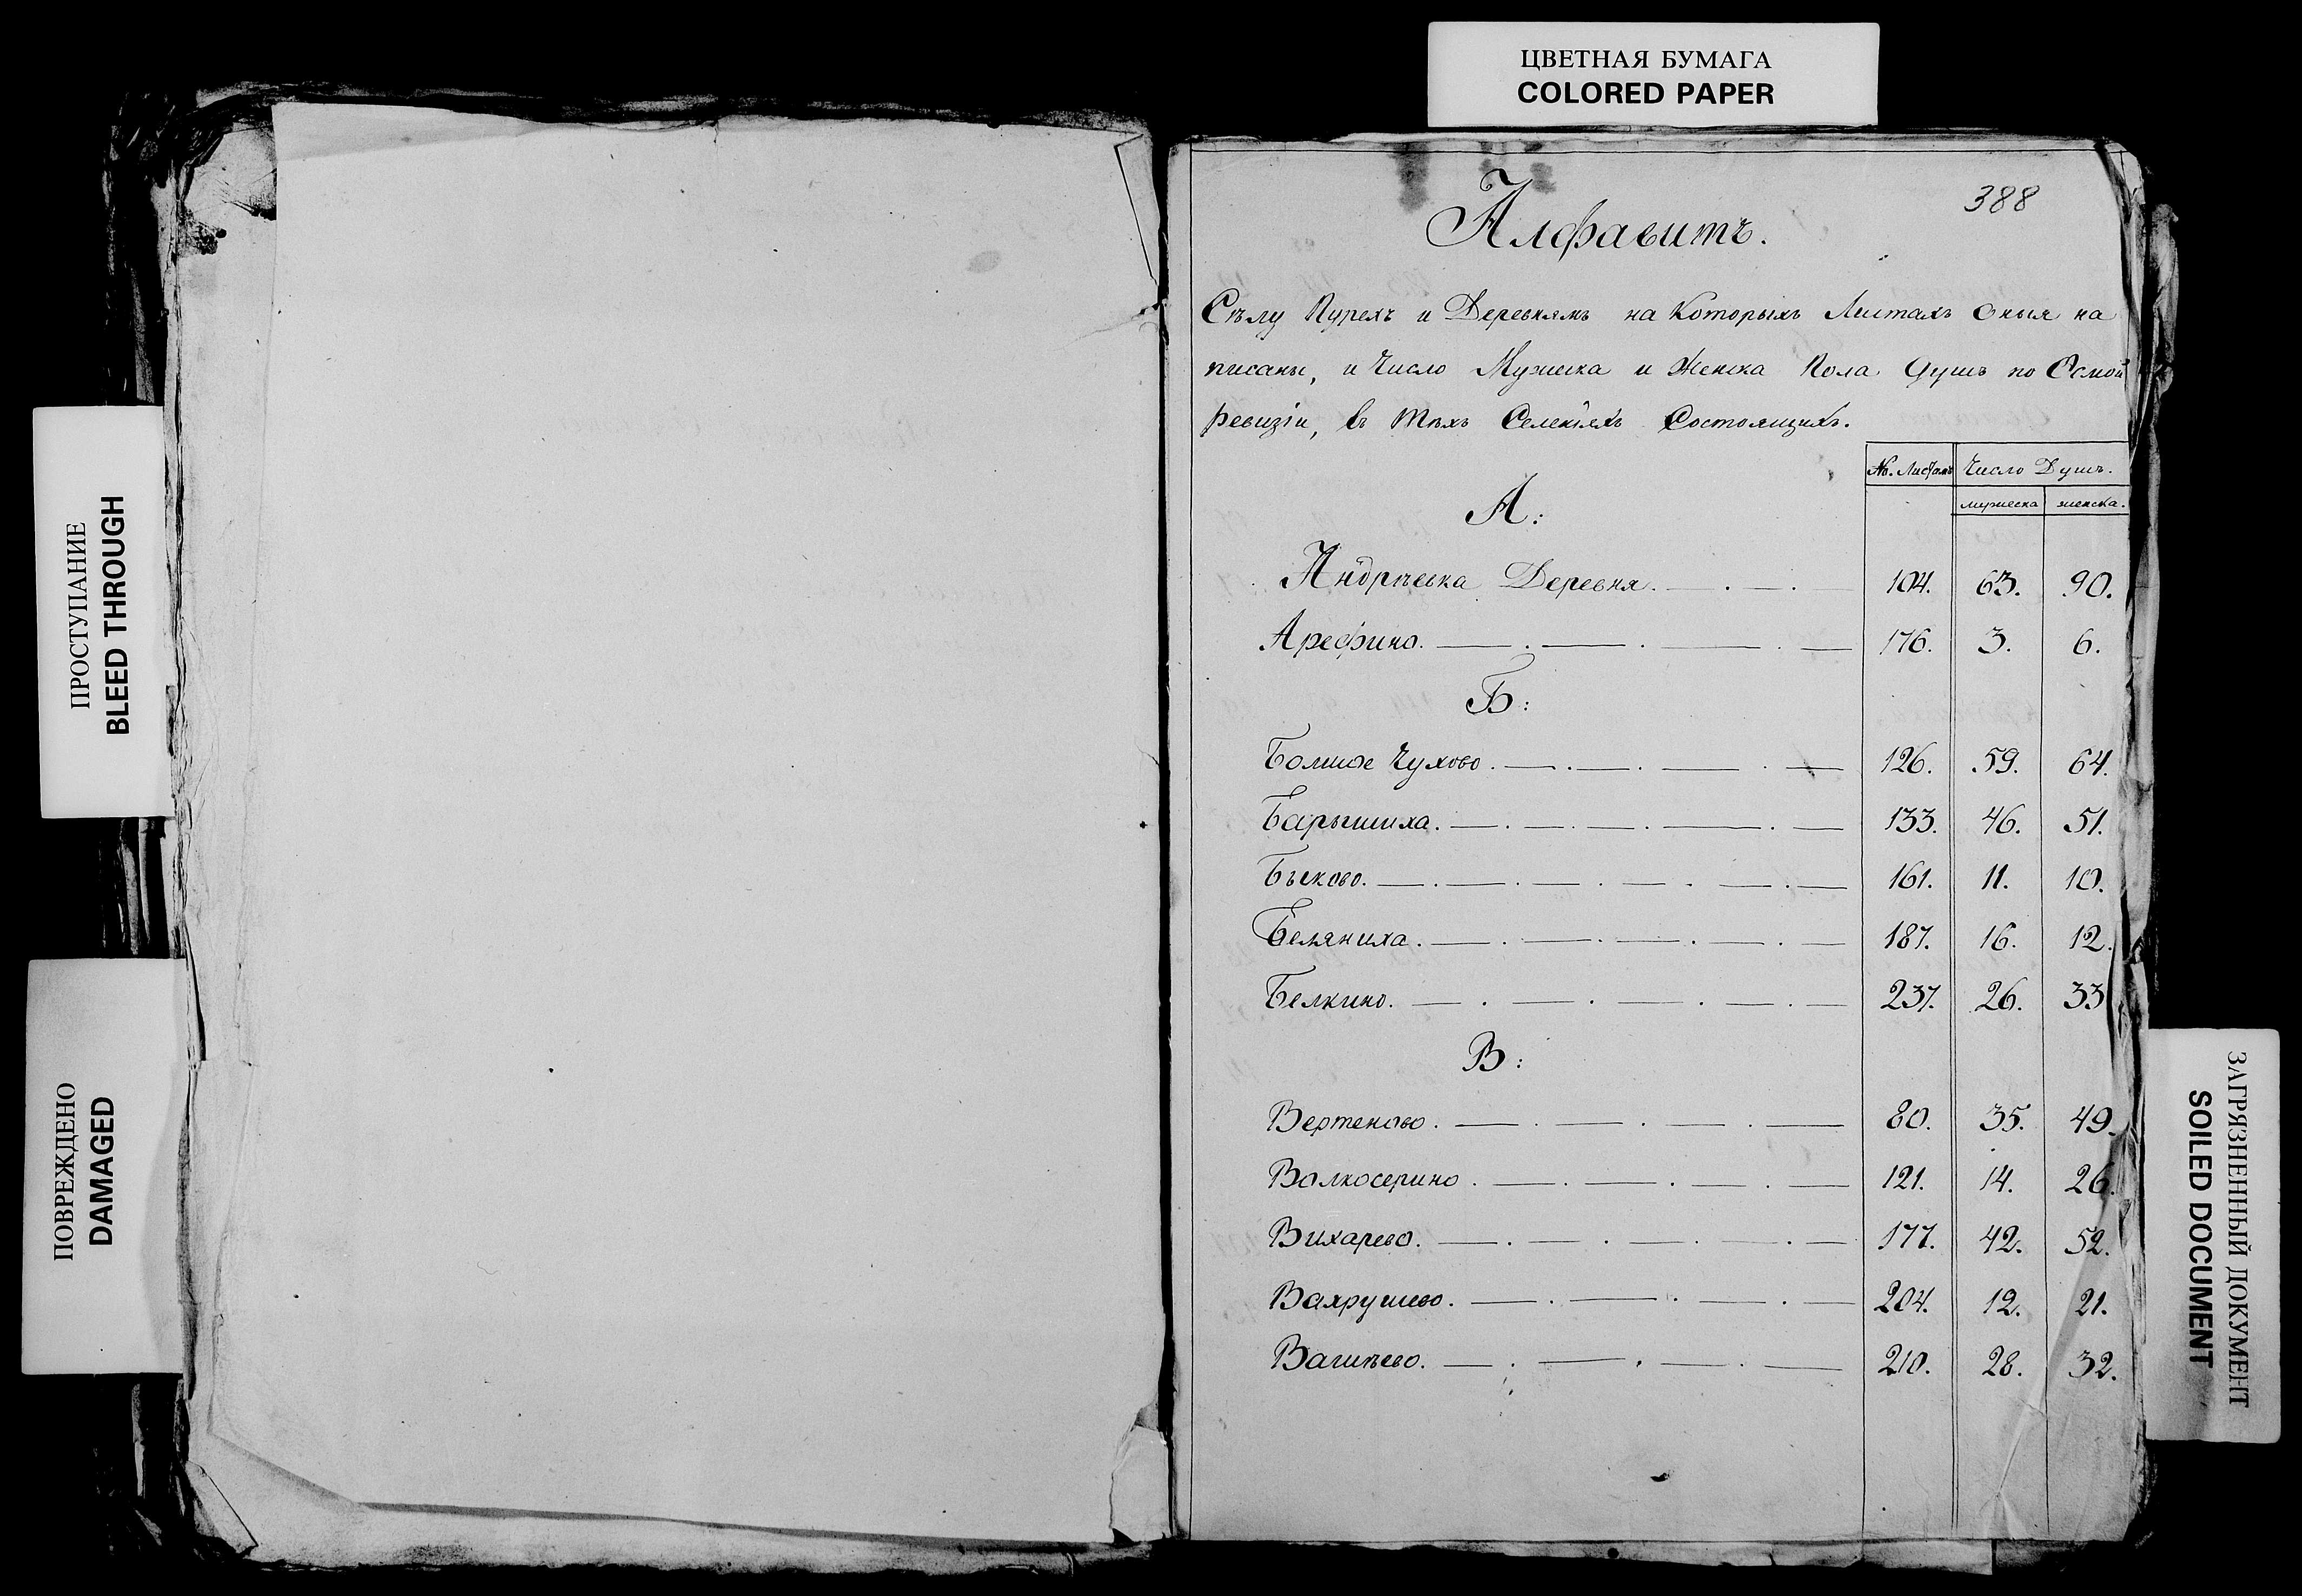 ЦВЕТНАЯ БУМАГА
COLORED PAPER
ПРОСТУПАНИЕ
BLEED THROUGH
ПОВРЕЖДЕНО
DAMAGED
ЗАГРЯЗНЕННЫЙ ДОКУМЕНТ
SOILED DOCUMENT
388
Алфавитъ.
Сѣлу Пурехъ и Деревнямъ на Которыхъ Листахъ оныя на
писаны, и Число Мужеска и Женска Пола душъ по Осмой
ревизiи, въ тѣхъ Селенiяхъ Состоящихъ.
№. Листамъ Число Душъ.
мужеска женска.
А:
Андрѣевка Деревня. 104. 63. 90.
Арефино. 176. 3. 6.
Б:
Болшое Чухово. 126. 59. 64.
Барышиха. 133. 46. 51.
Быково. 161. 11. 10.
Беляниха. 187. 16. 12.
Белкино. 237. 26. 33
В:
Вертеново. 80. 35. 49.
Волкосерино. 121. 14. 26.
Вихарево. 177. 42. 52.
Вахрушево. 204. 12. 21.
210. 28. 32.